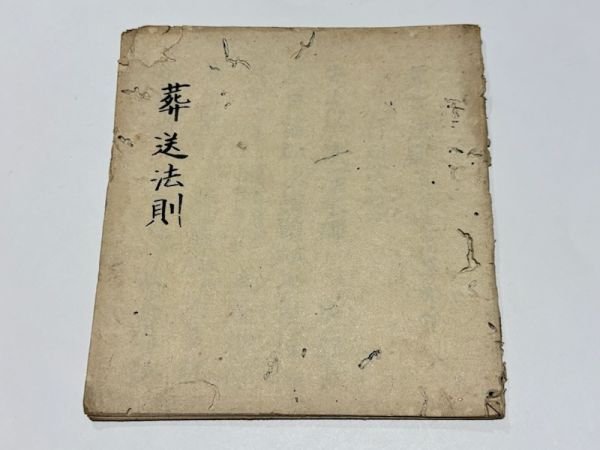 葬送法則